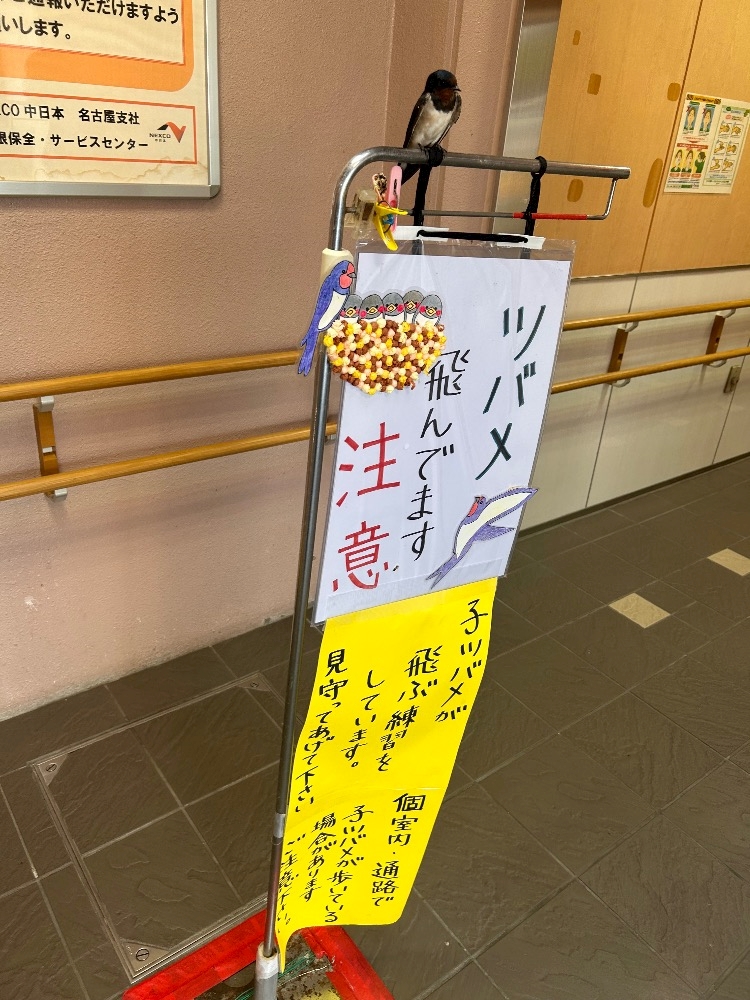 通報いただけますよう
いします。
CO 中日本　名古屋支社
保全・サービスセンター
NEXCO
ツバメ
飛んでます
注意
子ツバメが
飛ぶ練習を
しています。
見守ってあげて下さい
個室内・通路で
子ツバメが歩いている
場合があります